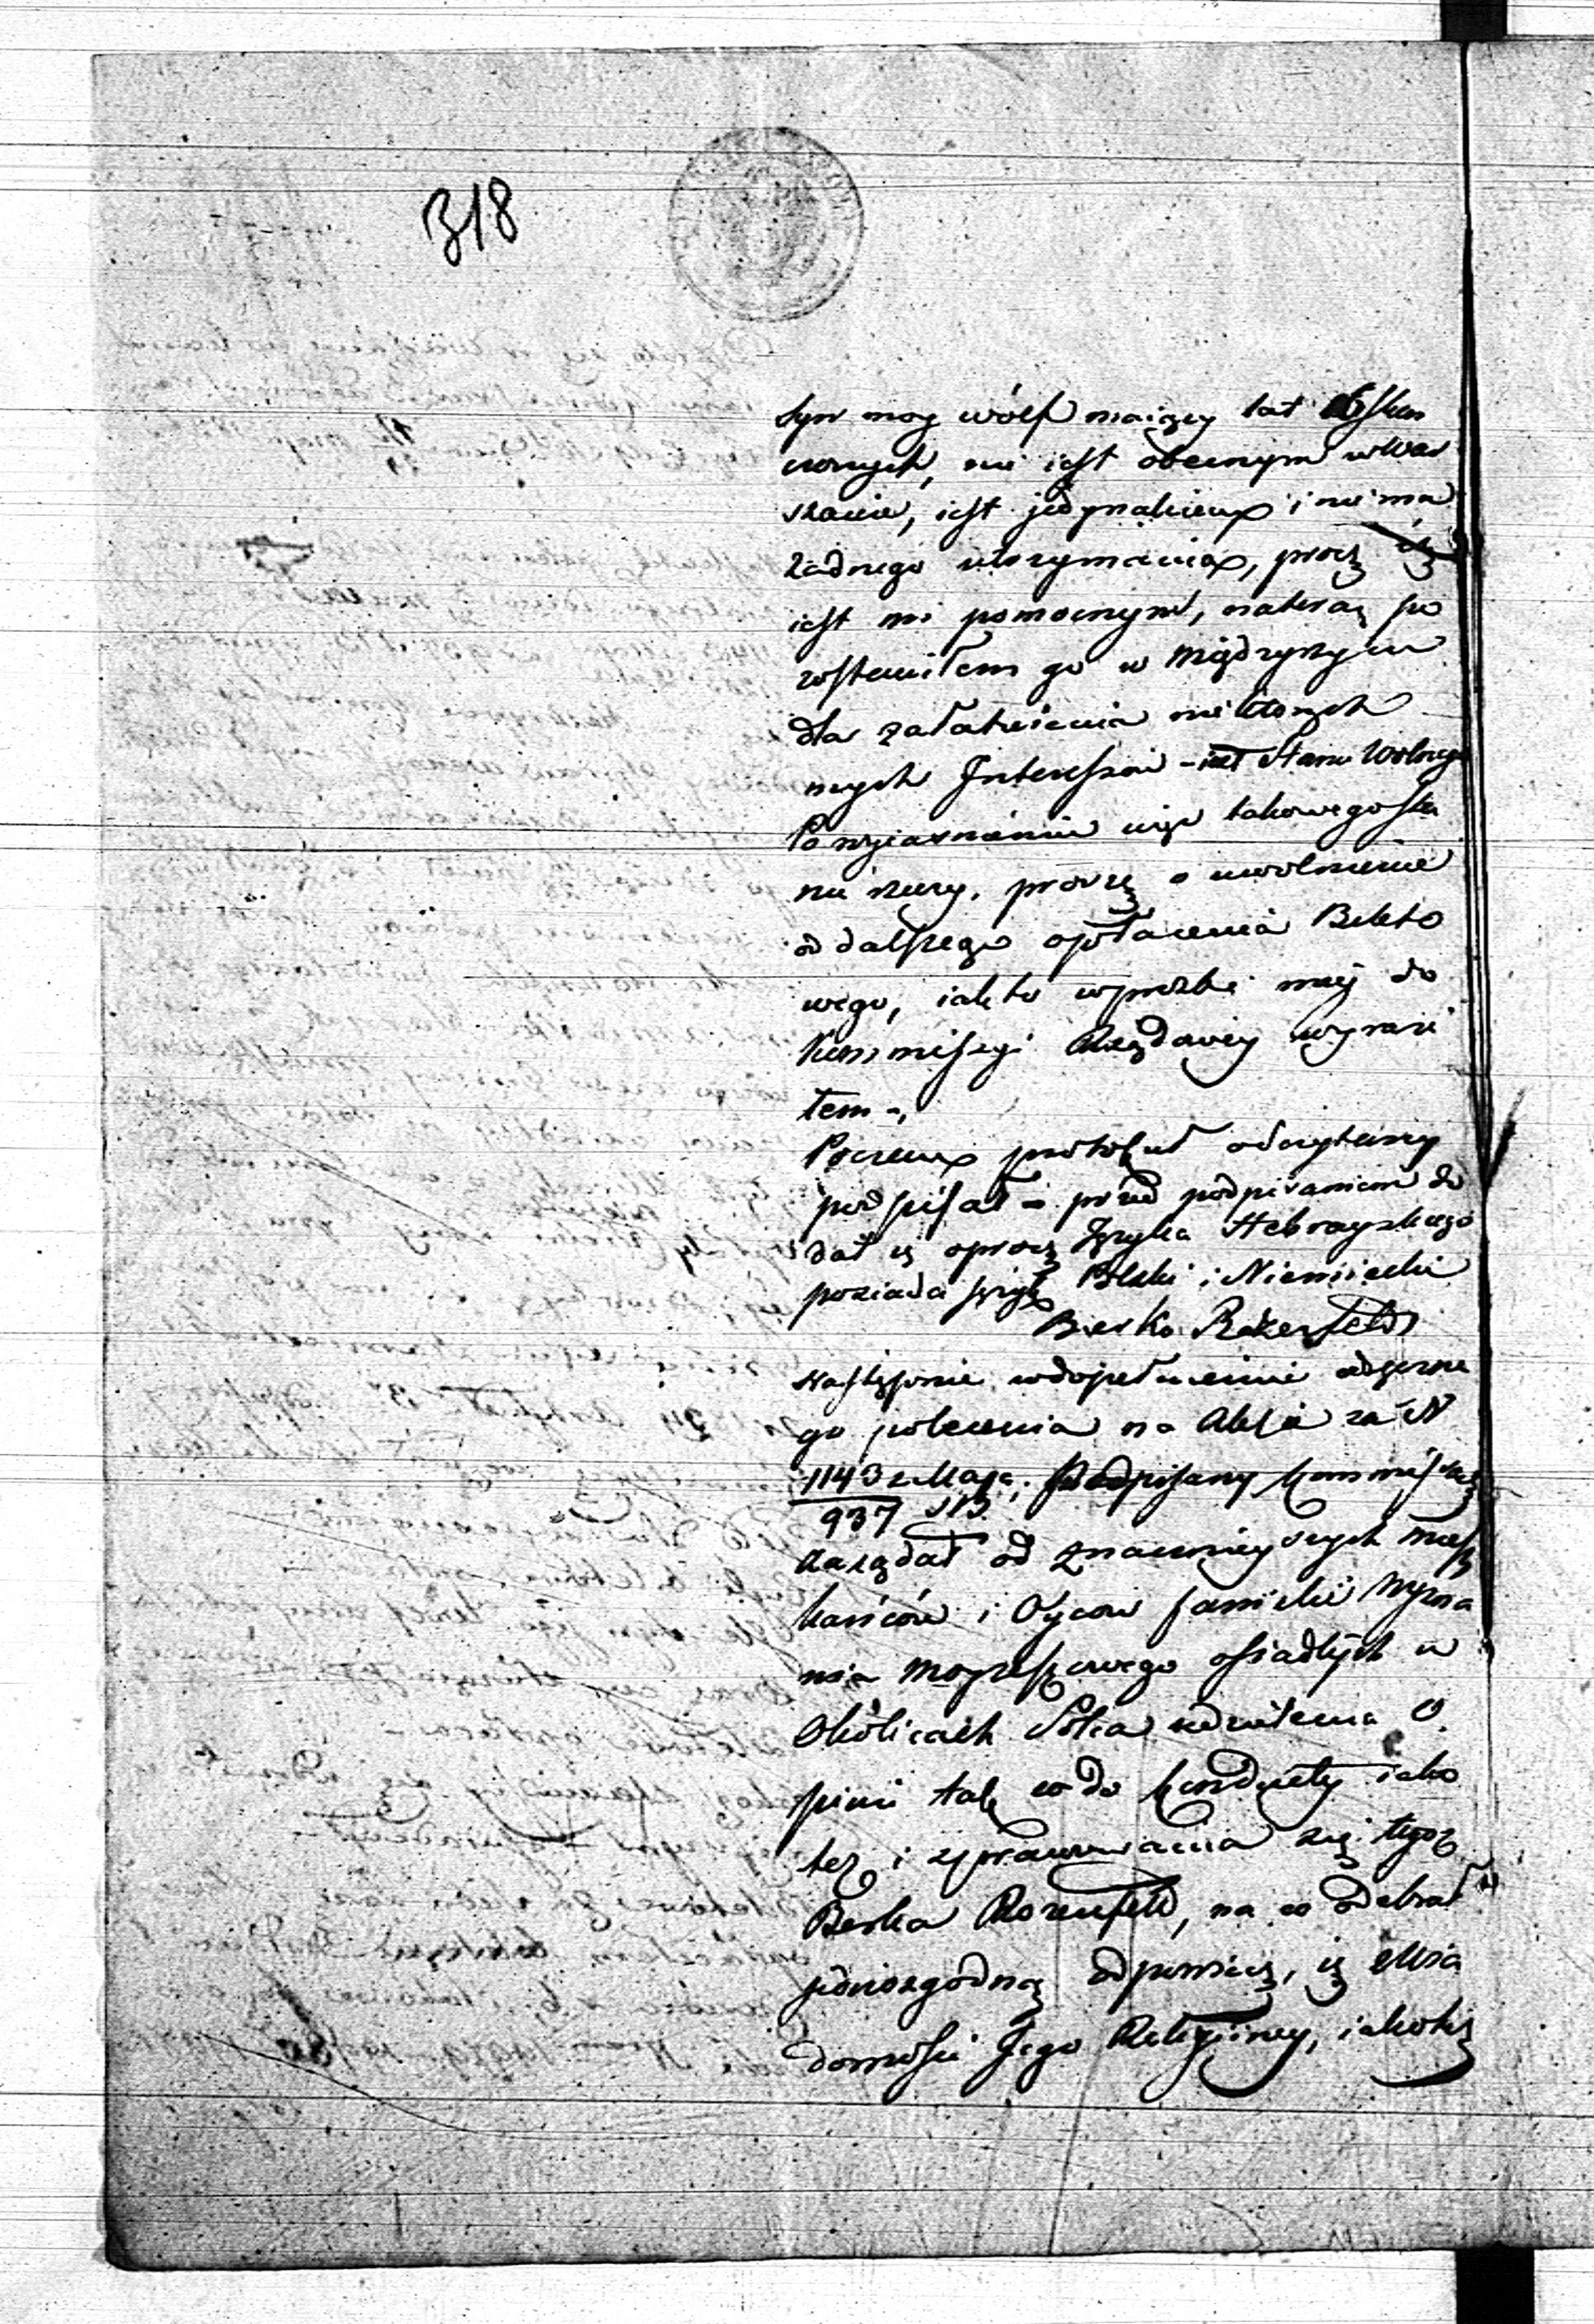 318
Syn moy Wólf maiący lat 16 skoń
czonych, nie iest obecnym w War
szawie, iest jedynakiem i nie ma
żadnego utrzymania, procz iż
iest mi pomocnym, nateraz po
zostawiłem go w Międzyrzycu
dla załatwienia niektorych
mych Interessow - iest Stanu Wolnego
Po wyiasnieniu więc takowego sta
nu rzeczy, proszę o uwolnienie
od dalszego opłacenia Bileto
wego, iak to w prozbie mey do
Kommissyi Rządowey wyrazi
łem -,
Poczem protokuł odczytany
podpisał - przed podpisaniem do
dał iż oprocz Języka Hebrayskiego
posiada język Polski i Niemiecki
Berko Rozenfeld
Następnie w dopełnieniu odręczne
go polecenia na Akcie za N
1143 z Maja, Podpisany Kommissarz
937
zażądał od znacznieyszych miesz
kańców i Oyców familii Wyzna
nia Moyżeszowego osiadłych w
Okolicach Solca udzielenia O
pinii tak co do konduity iako
też i sprawowania się tegoż
Berka Rozenfeld, na co odebrał
jednozgodną odpowiedź, iż Wia
domości Jego Religiiney, iakoteż